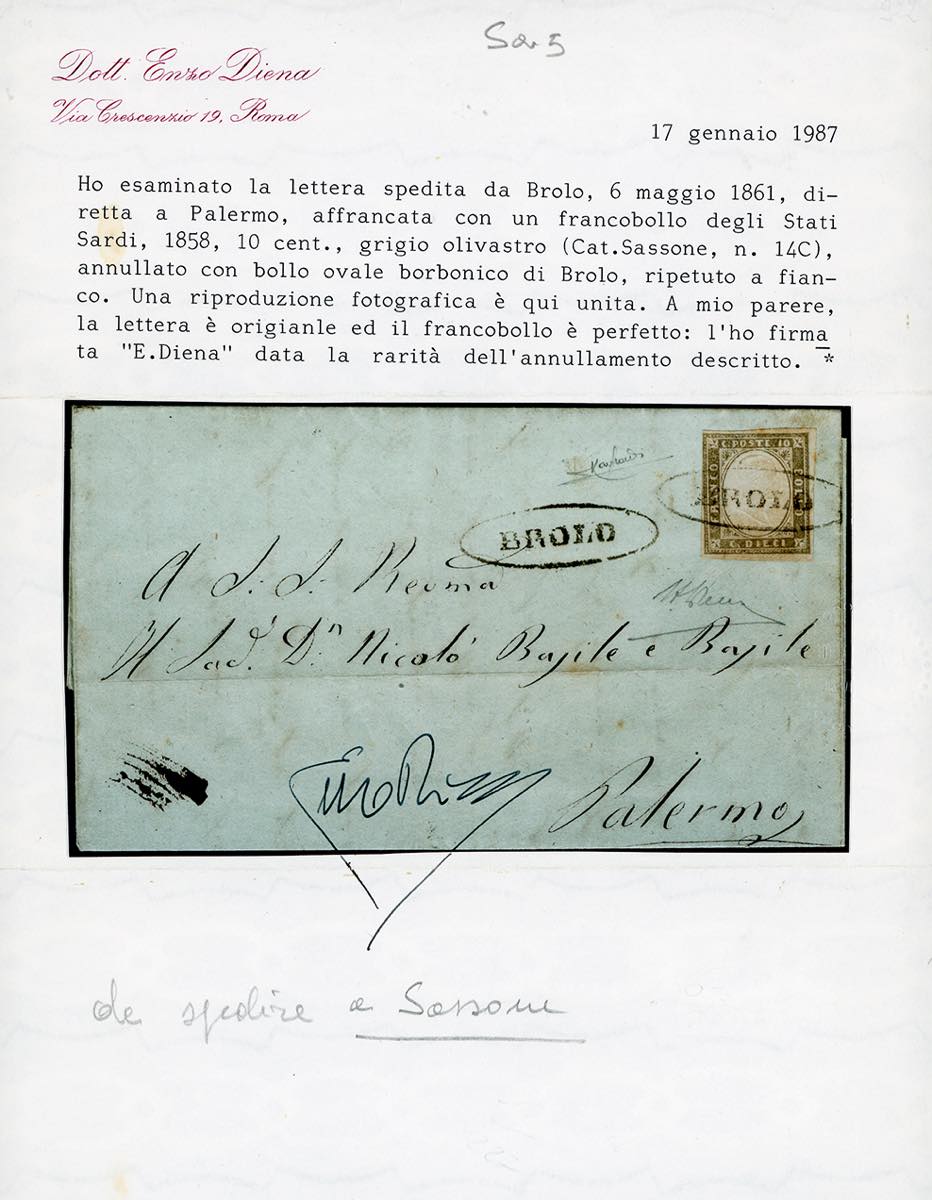 Sas 5
Dott. Enzo Diena
Via Crescenzio 19, Roma
17 gennaio 1987
Ho esaminato la lettera spedita da Brolo, 6 maggio 1861, di-
retta a Palermo, affrancata con un francobollo degli Stati
Sardi, 1858, 10 cent., grigio olivastro (Cat.Sassone, n. 14C),
annullato con bollo ovale borbonico di Brolo, ripetuto a fian-
co. Una riproduzione fotografica è qui unita. A mio parere,
la lettera è origianle ed il francobollo è perfetto: l'ho firma
ta "E.Diena" data la rarità dell'annullamento descritto. *
C. POSTE 10
FRANCO
BOLLO
C. DIECI
BROLO
BROLO
A S. S. Revma
Il Sad. Dn Nicolò Basile e Basile
Palermo
da spedire a Sassone